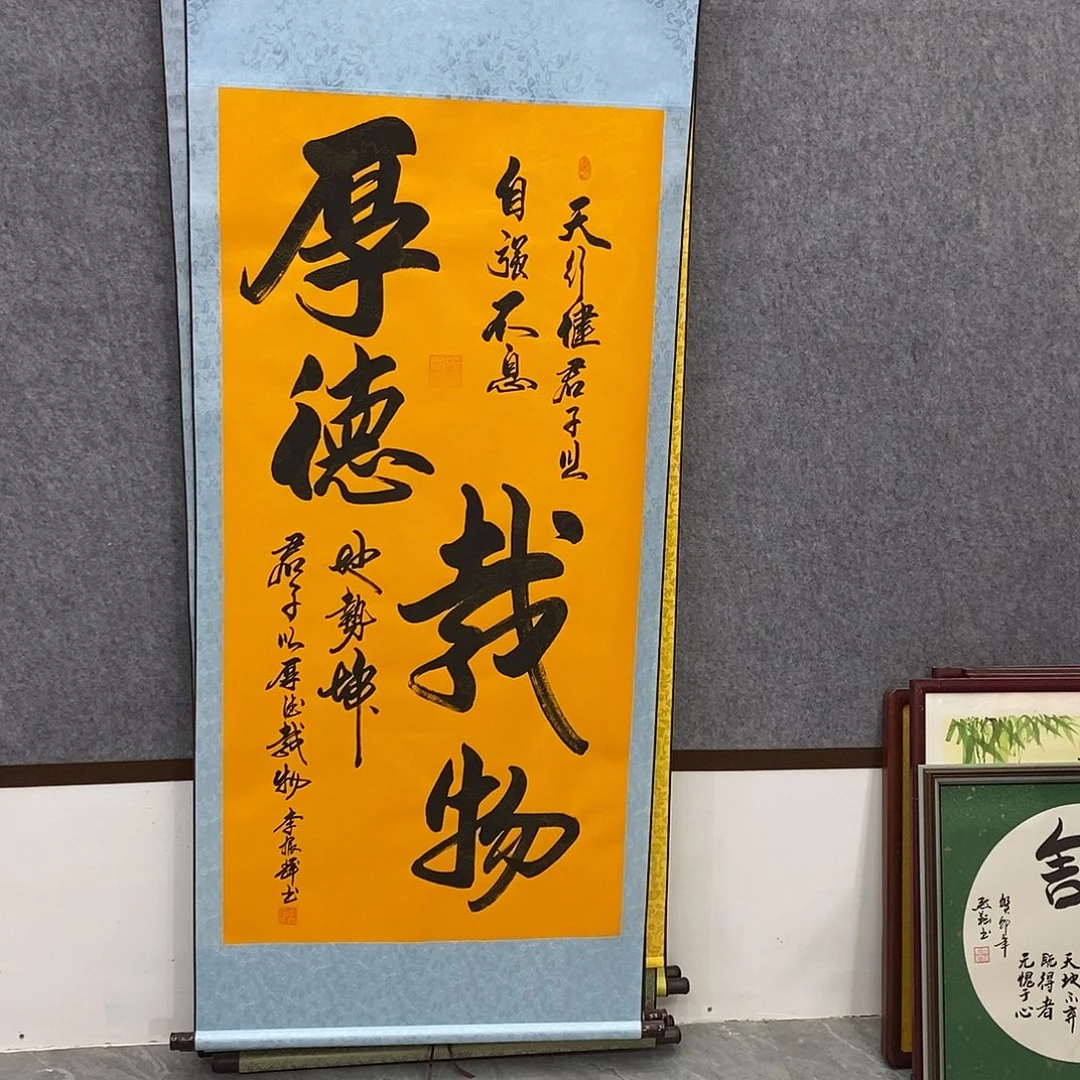 天行健君子以
自强不息
厚德
载物
地勢坤
君子以厚德载物 李振辉书
舍
天地不弃
既得者
无愧于心
癸卯年